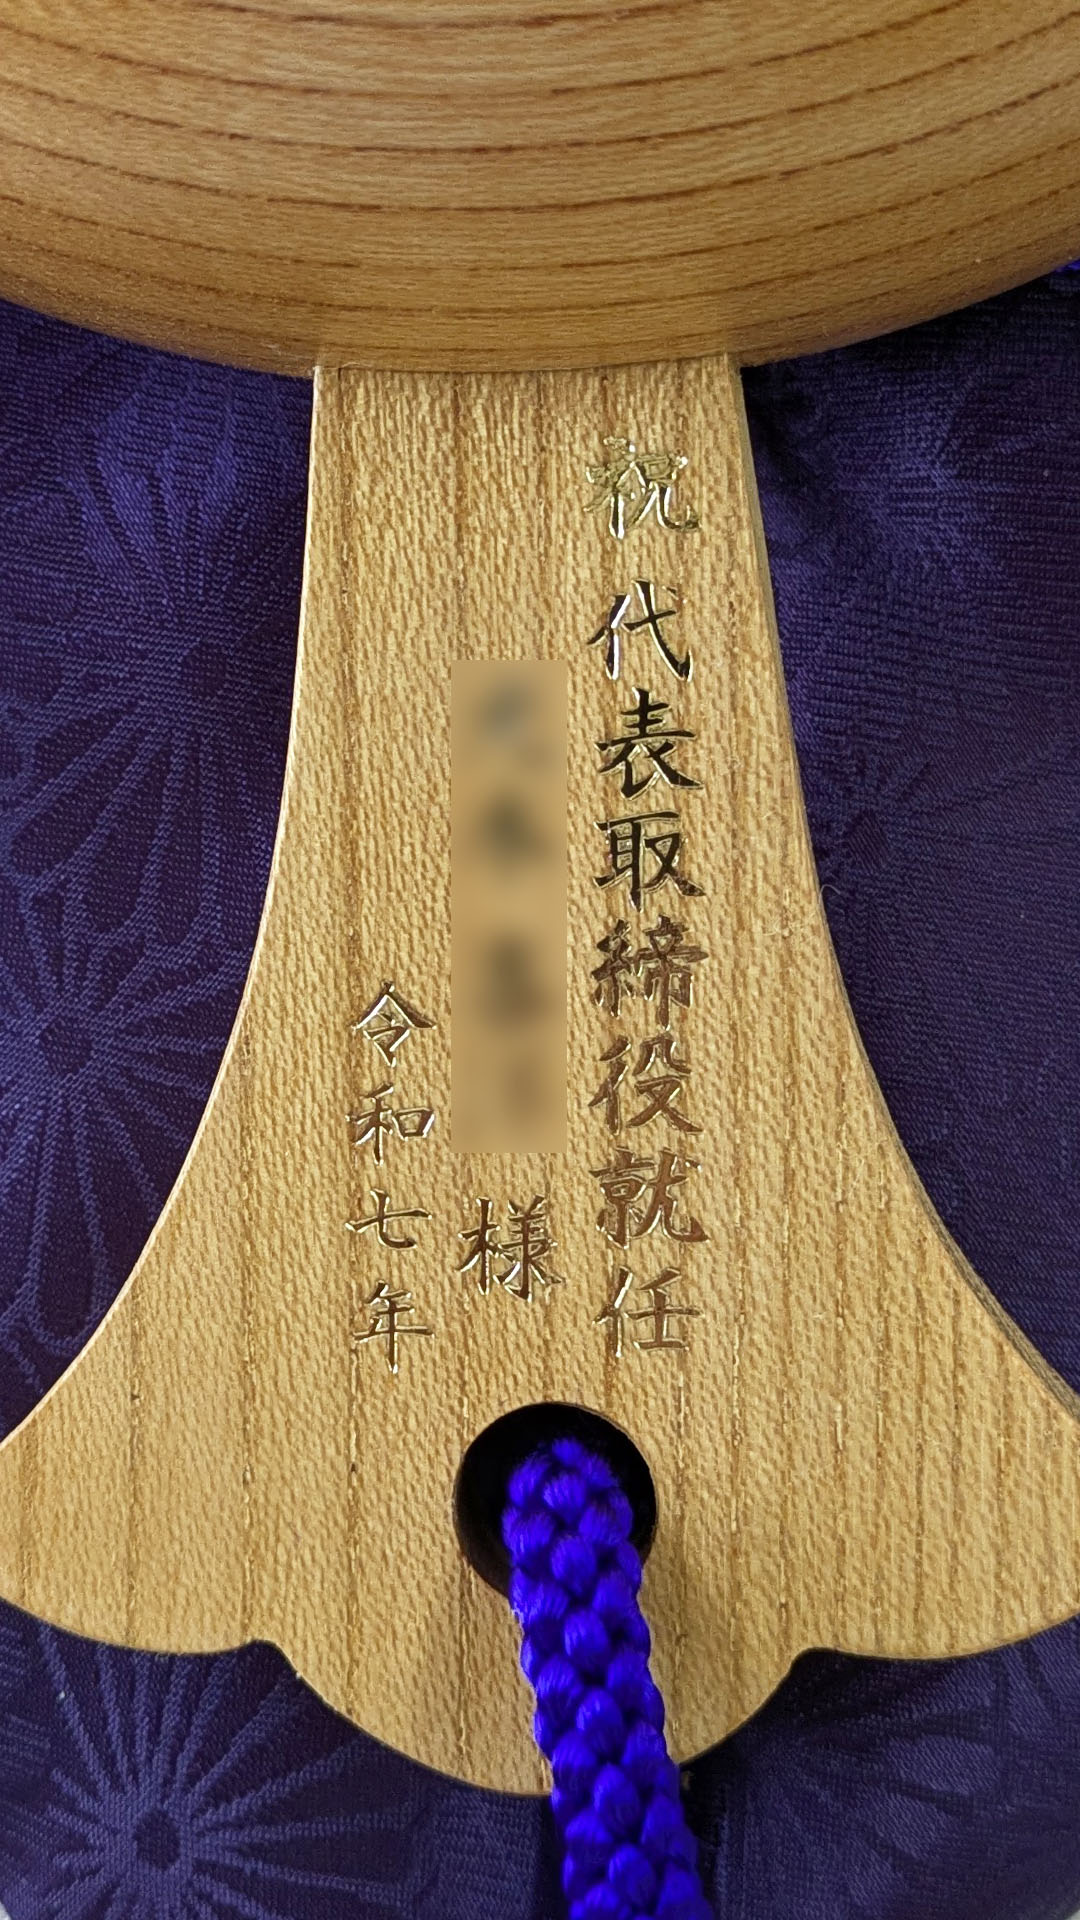 祝 代表取締役就任
様
令和七年